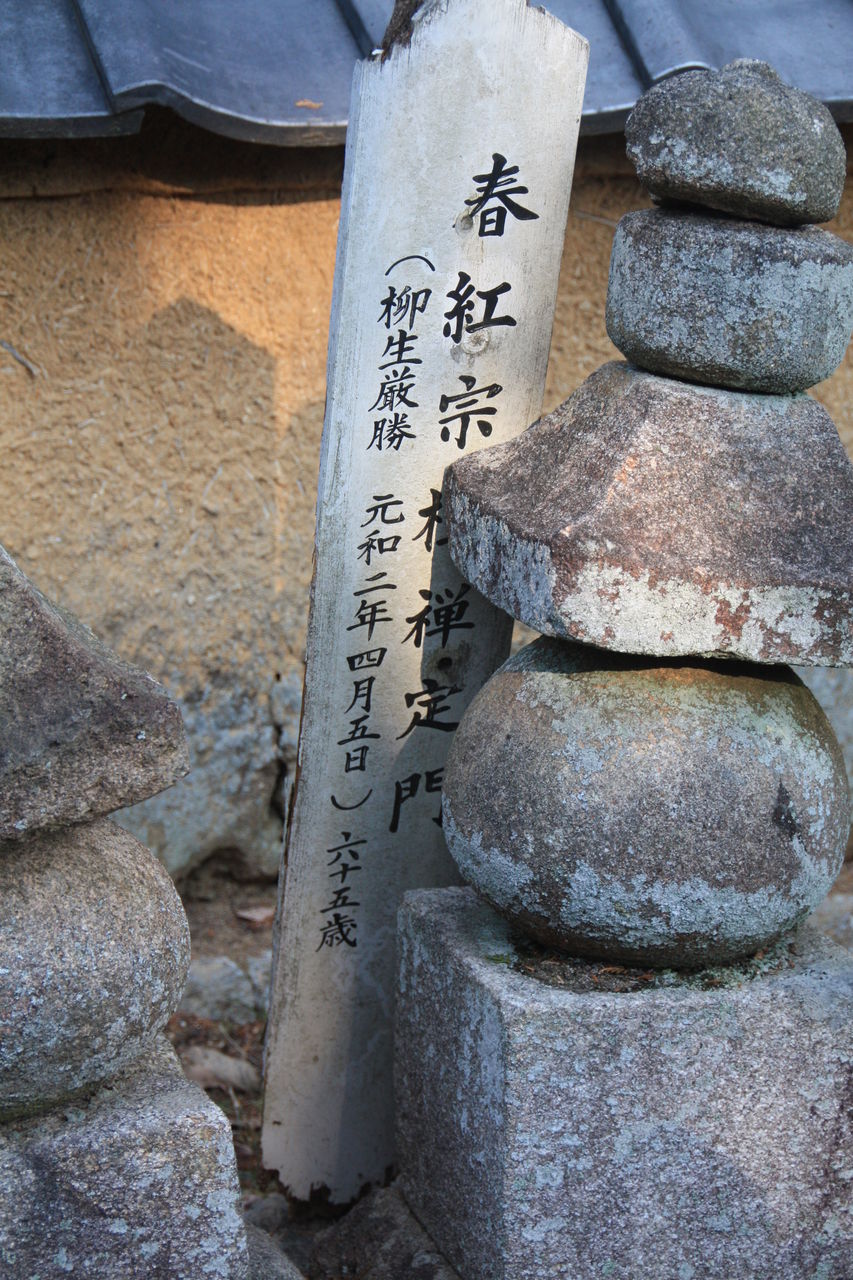 春紅宗禅定門
（柳生厳勝 元和二年四月五日）六十五歳